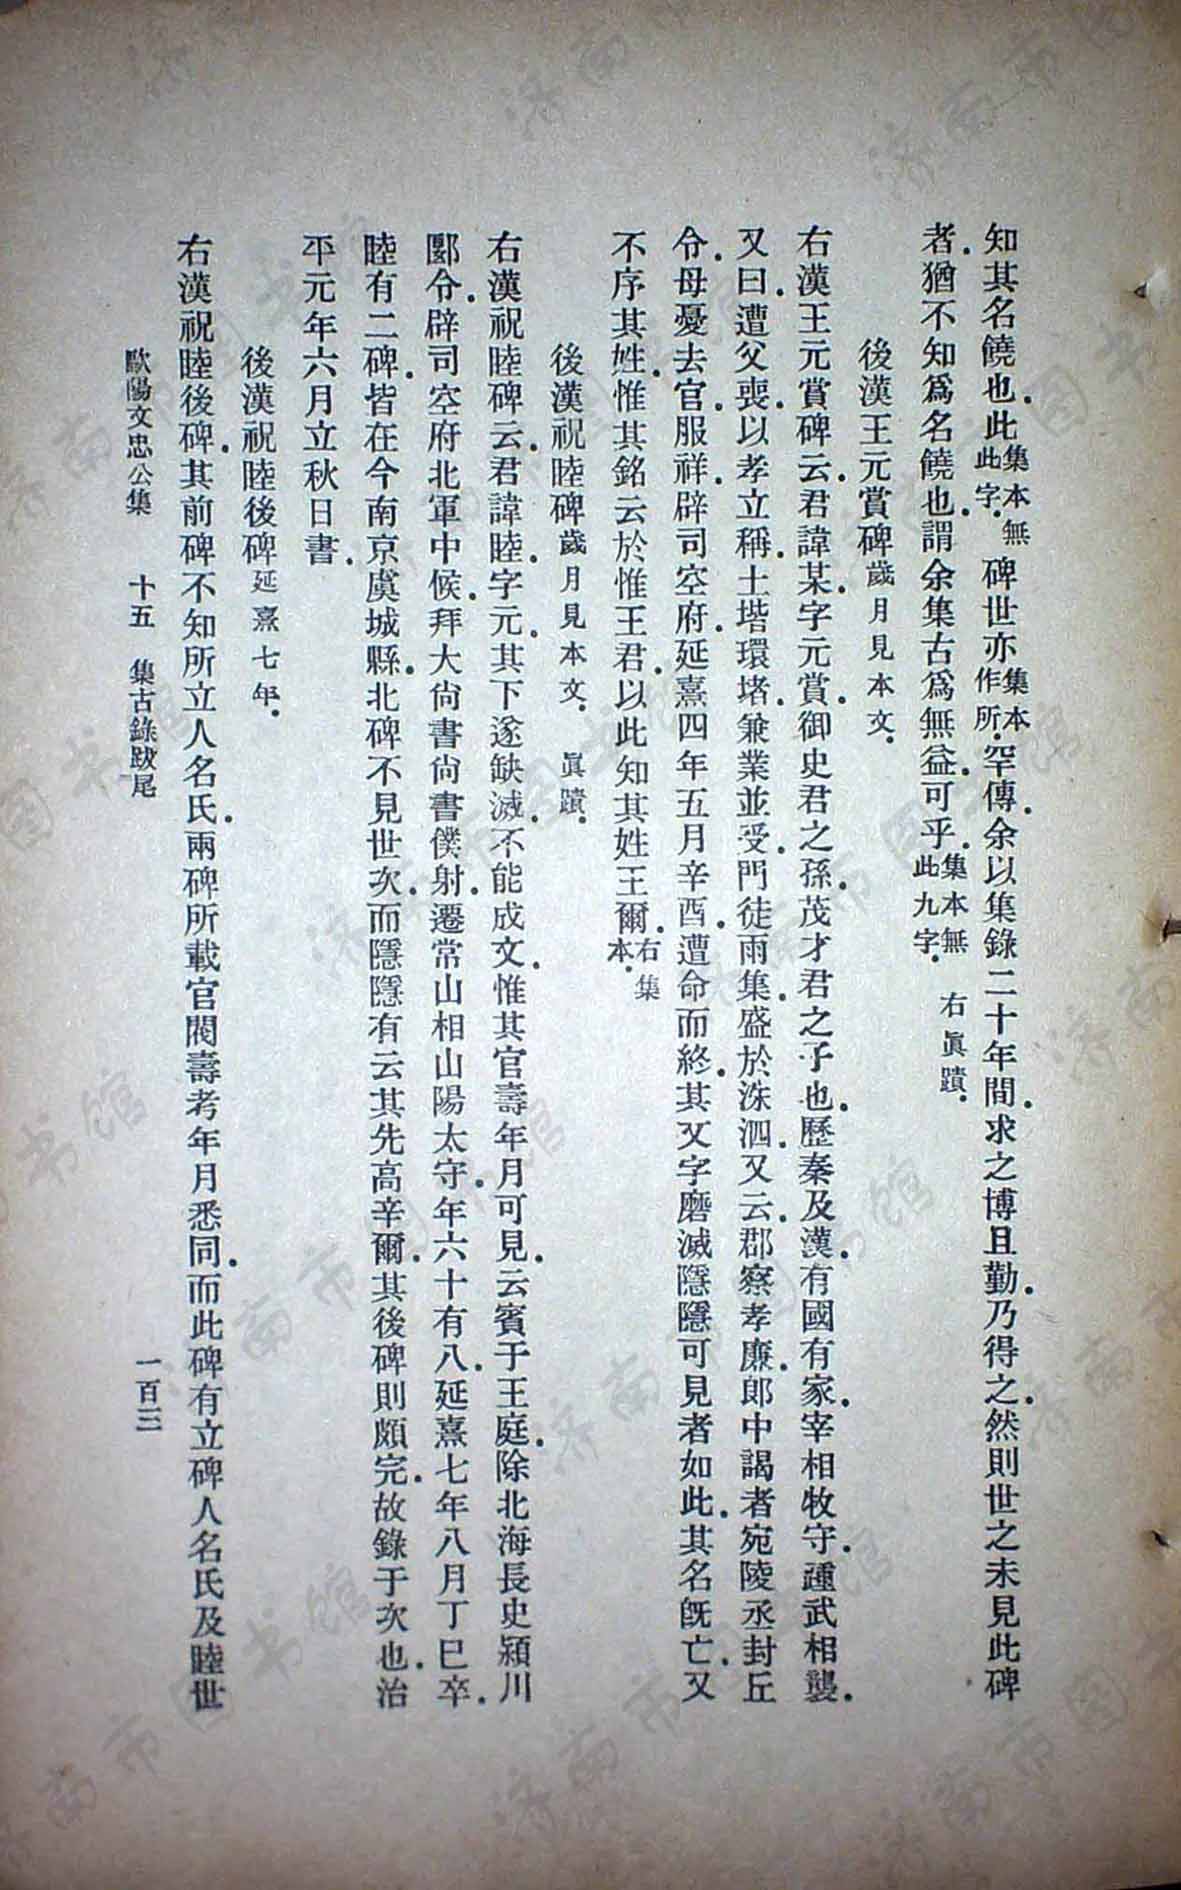 知其名饒也．此集本無此字．碑世亦集本作所．罕傳．余以集錄二十年間．求之博且勤．乃得之．然則世之未見此碑
者．猶不知爲名饒也．謂余集古爲無益．可乎．集本無此九字．右眞蹟．
後漢王元賞碑歲月見本文．
右漢王元賞碑云．君諱某．字元賞．御史君之孫．茂才君之子也．歷秦及漢．有國有家．宰相牧守．踵武相襲．
又曰．遭父喪．以孝立稱．土堦環堵．兼業並受．門徒雨集．盛於洙泗．又云．郡察孝廉．郎中謁者宛陵丞封丘
令．母憂去官．服祥．辟司空府．延熹四年五月辛酉．遭命而終．其文字磨滅．隱隱可見者如此．其名旣亡．又
不序其姓．惟其銘云於惟王君．以此知其姓王爾．右集本．
後漢祝睦碑歲月見本文．眞蹟．
右漢祝睦碑云．君諱睦．字元．其下遂缺滅．不能成文．惟其官壽年月可見．云賓于王庭．除北海長史潁川
郾令．辟司空府北軍中候．拜大尙書尙書僕射．遷常山相山陽太守．年六十有八．延熹七年八月丁巳卒．
睦有二碑．皆在今南京虞城縣．北碑不見世次．而隱隱有云其先高辛爾．其後碑則頗完．故錄于次也．治
平元年六月立秋日書．
後漢祝睦後碑延熹七年．
右漢祝睦後碑．其前碑不知所立人名氏．兩碑所載官閥壽考年月悉同．而此碑有立碑人名氏及睦世
歐陽文忠公集　十五　集古錄跋尾　一百三
济南市图书馆